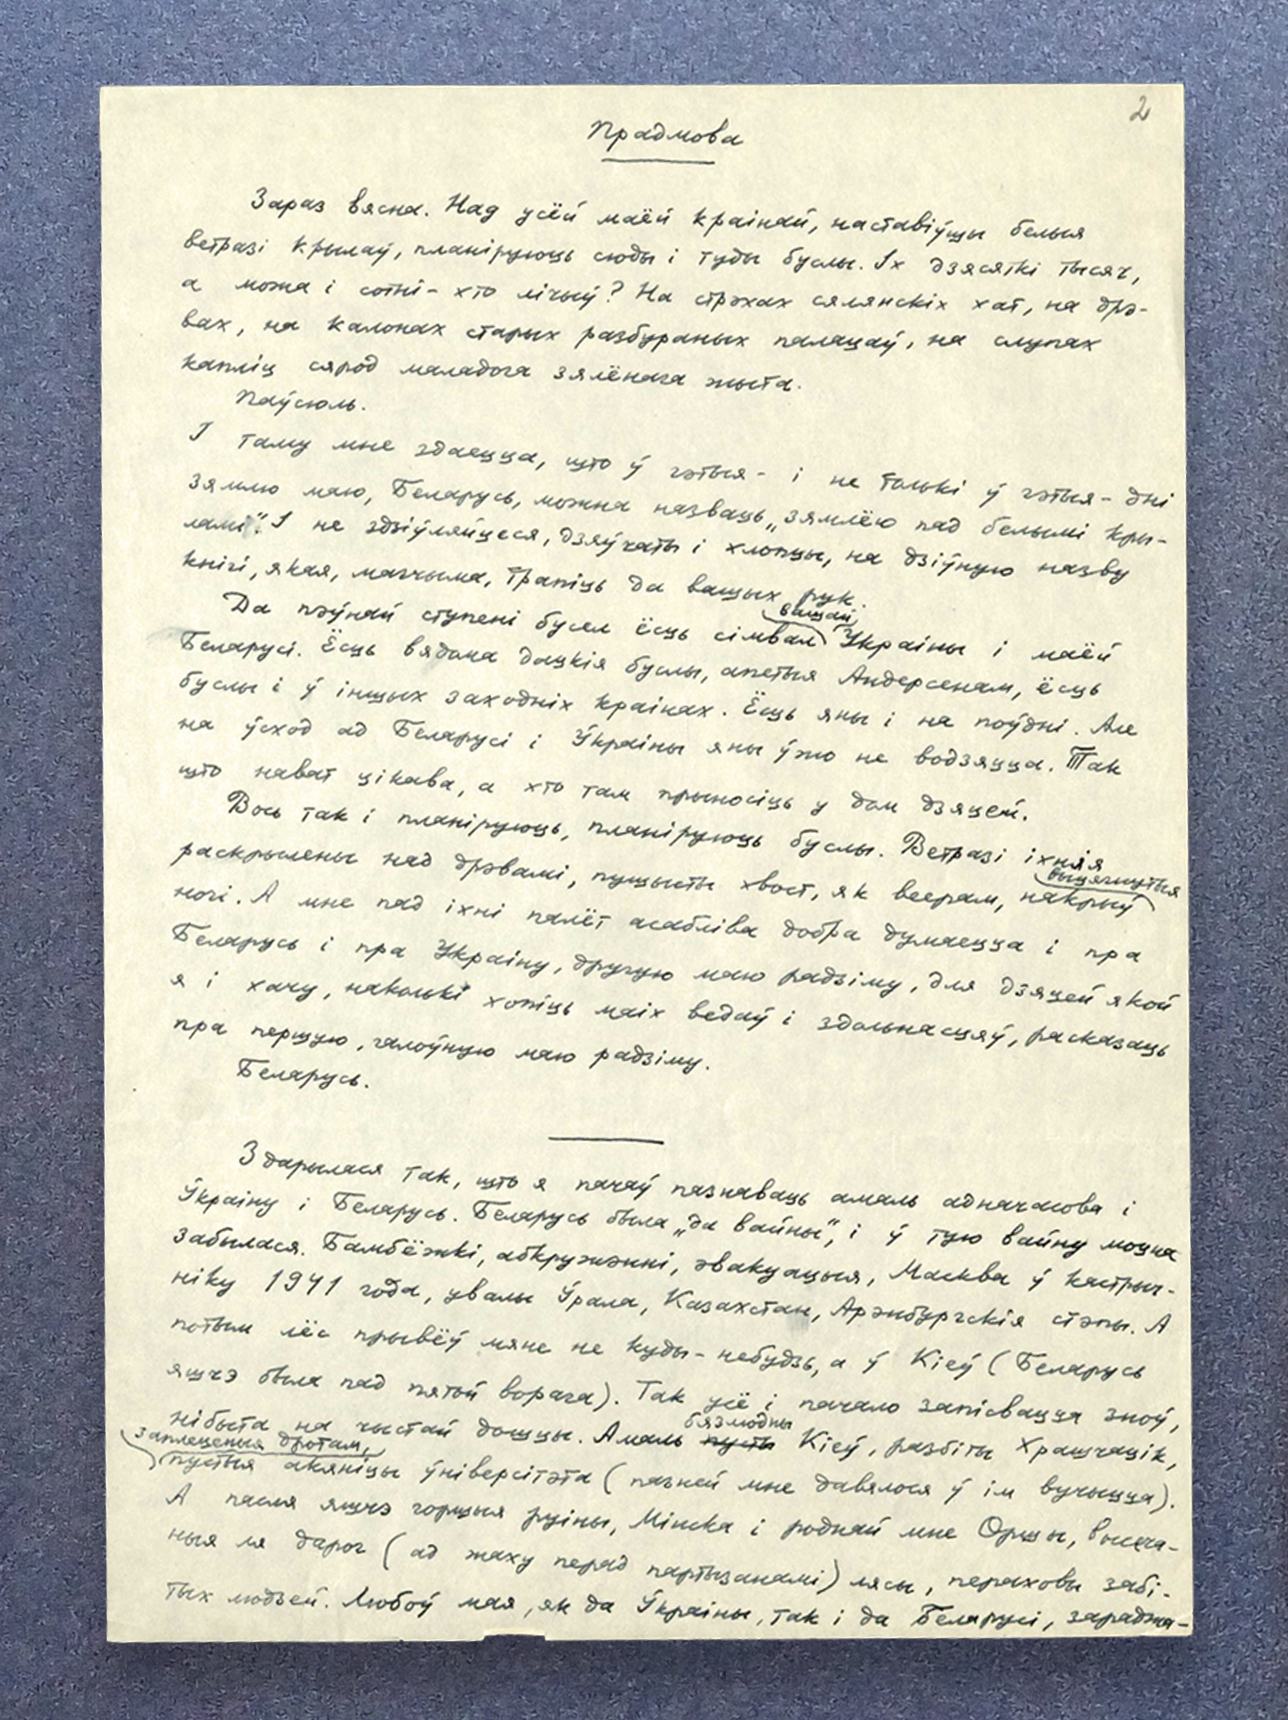 2
Прадмова
Зараз вясна. Над усёй маёй краінай, наставіўшы белыя
ветразі крылаў, планіруюць сюды і туды буслы. Іх дзясяткі тысяч,
а можа і сотні - хто лічыў? На стрэхах сялянскіх хат, на дрэ-
вах, на калонах старых разбураных палацаў, на слупах
капліц сярод маладога зялёнага жыта.
Паўсюль.
І таму мне здаецца, што ў гэтыя - і не толькі ў гэтыя - дні
зямлю маю, Беларусь, можна назваць „зямлёю пад белымі кры-
ламі". І не здзіўляйцеся, дзяўчаты і хлопцы, на дзіўную назву
кнігі, якая, магчыма, трапіць да вашых рук.
вашай
Да пэўнай ступені бусел ёсць сімвал Украіны і маёй
Беларусі. Ёсць вядома дацкія буслы, апетыя Андерсенам, ёсць
буслы і ў іншых заходніх краінах. Ёсць яны і на поўдні. Але
на ўсход ад Беларусі і Ўкраіны яны ўжо не водзяцца. Так
што нават цікава, а хто там прыносіць у дом дзяцей.
Вось так і планіруюць, планіруюць буслы. Ветразі іхнія
раскрылены над дрэвамі, пушысты хвост, як веерам, накрыў
выцягнутыя
ногі. А мне пад іхні палёт асабліва добра думаецца і пра
Беларусь і пра Украіну, другую маю радзіму, для дзяцей якой
я і хачу, наколькі хопіць маіх ведаў і здольнасцяў, расказаць
пра першую, галоўную маю радзіму.
Беларусь.
Здарылася так, што я пачаў пазнаваць амаль адначасова і
Ўкраіну і Беларусь. Беларусь была „да вайны", і ў тую вайну моцна
забылася. Бамбёжкі, абкружэнні, эвакуацыя, Масква ў кастрыч-
ніку 1941 года, увалы Ўрала, Казахстан, Арэнбургскія стэпы. А
потым лёс прывёў мяне не куды-небудзь, а ў Кіеў (Беларусь
яшчэ была пад пятой ворага). Так усё і пачало запісвацца зноў,
бязмодны
нібыта на чыстай дошцы. Амаль пусты Кіеў, разбіты Храшчацік,
заплеценыя дротам,
пустыя аканіцы ўніверсітэта (пазней мне давялося ў ім вучыцца).
А пасля яшчэ горшыя руіны, Мінска і роднай мне Оршы, высеча-
ныя ля дарог (ад жаху перад партызанамі) лясы, пераховы забі-
тых людзей. Любоў мая, як да Ўкраіны, так і да Беларусі, зараджа-